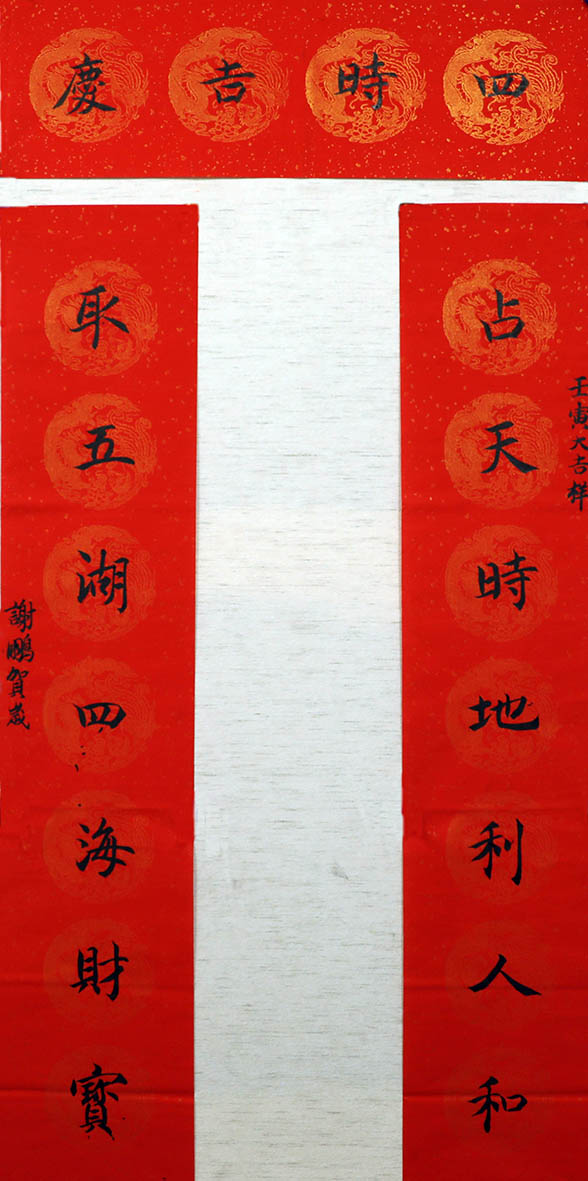 四時吉慶
占天時地利人和
壬寅大吉祥
取五湖四海財寶
謝鵬賀歲